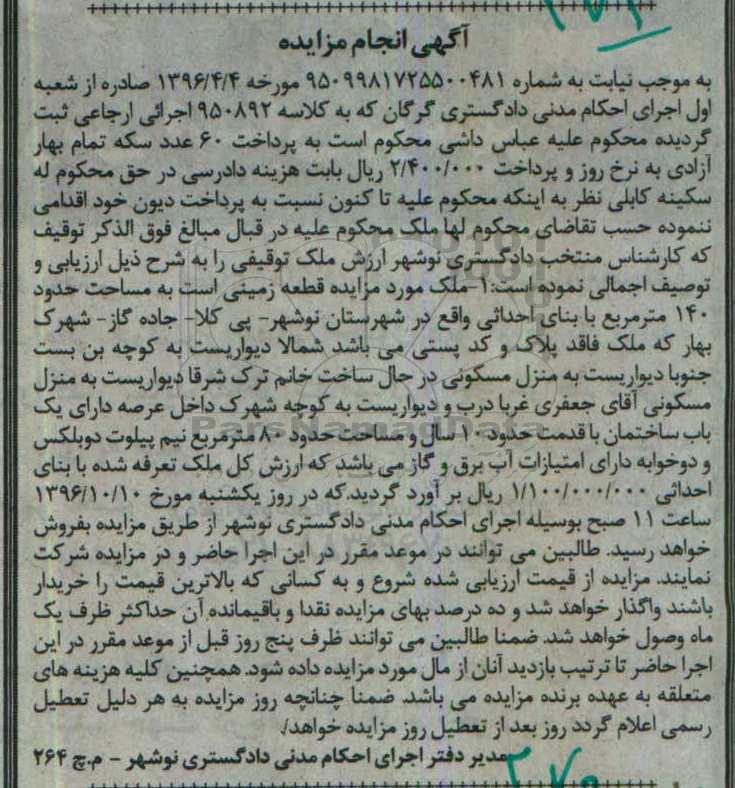 آگهی انجام مزایده
به موجب نیابت به شماره ۹۵۰۹۹۸۱۷۲۵۵۰۰۴۸۱ مورخه ۱۳۹۶/۴/۴ صادره از شعبه
اول اجرای احکام مدنی دادگستری گرگان که به کلاسه ۹۵۰۸۹۲ اجرائی ارجاعی ثبت
گردیده محکوم علیه عباس داشی محکوم است به پرداخت ۶۰ عدد سکه تمام بهار
آزادی به نرخ روز و پرداخت ۲/۴۰۰/۰۰۰ ریال بابت هزینه دادرسی در حق محکوم له
سکینه کابلی نظر به اینکه محکوم علیه تا کنون نسبت به پرداخت دیون خود اقدامی
ننموده حسب تقاضای محکوم لها ملک محکوم علیه در قبال مبالغ فوق الذکر توقیف
که کارشناس منتخب دادگستری نوشهر ارزش ملک توقیفی را به شرح ذیل ارزیابی و
توصیف اجمالی نموده است:۱-ملک مورد مزایده قطعه زمینی است به مساحت حدود
۱۴۰ مترمربع با بنای احداثی واقع در شهرستان نوشهر- پی کلا- جاده گاز- شهرک
بهار که ملک فاقد پلاک و کد پستی می باشد شمالا دیواریست به کوچه بن بست
جنوبا دیواریست به منزل مسکونی در حال ساخت خانم ترک شرقا دیواریست به منزل
مسکونی آقای جعفری غربا درب و دیواریست به کوچه شهرک داخل عرصه دارای یک
باب ساختمان با قدمت حدود ۱۰ سال و مساحت حدود ۸۰ مترمربع نیم پیلوت دوبلکس
و دوخوابه دارای امتیازات آب برق و گاز می باشد که ارزش کل ملک تعرفه شده با بنای
احداثی ۱/۱۰۰/۰۰۰/۰۰۰ ریال بر آورد گردید.که در روز یکشنبه مورخ ۱۳۹۶/۱۰/۱۰
ساعت ۱۱ صبح بوسیله اجرای احکام مدنی دادگستری نوشهر از طریق مزایده بفروش
خواهد رسید. طالبین می توانند در موعد مقرر در این اجرا حاضر و در مزایده شرکت
نمایند. مزایده از قیمت ارزیابی شده شروع و به کسانی که بالاترین قیمت را خریدار
باشند واگذار خواهد شد و ده درصد بهای مزایده نقدا و باقیمانده آن حداکثر ظرف یک
ماه وصول خواهد شد. ضمنا طالبین می توانند ظرف پنج روز قبل از موعد مقرر در این
اجرا حاضر تا ترتیب بازدید آنان از مال مورد مزایده داده شود. همچنین کلیه هزینه های
متعلقه به عهده برنده مزایده می باشد. ضمنا چنانچه روز مزایده به هر دلیل تعطیل
رسمی اعلام گردد روز بعد از تعطیل روز مزایده خواهد/.
مدیر دفتر اجرای احکام مدنی دادگستری نوشهر - م.چ ۲۶۴
ParsNamadData